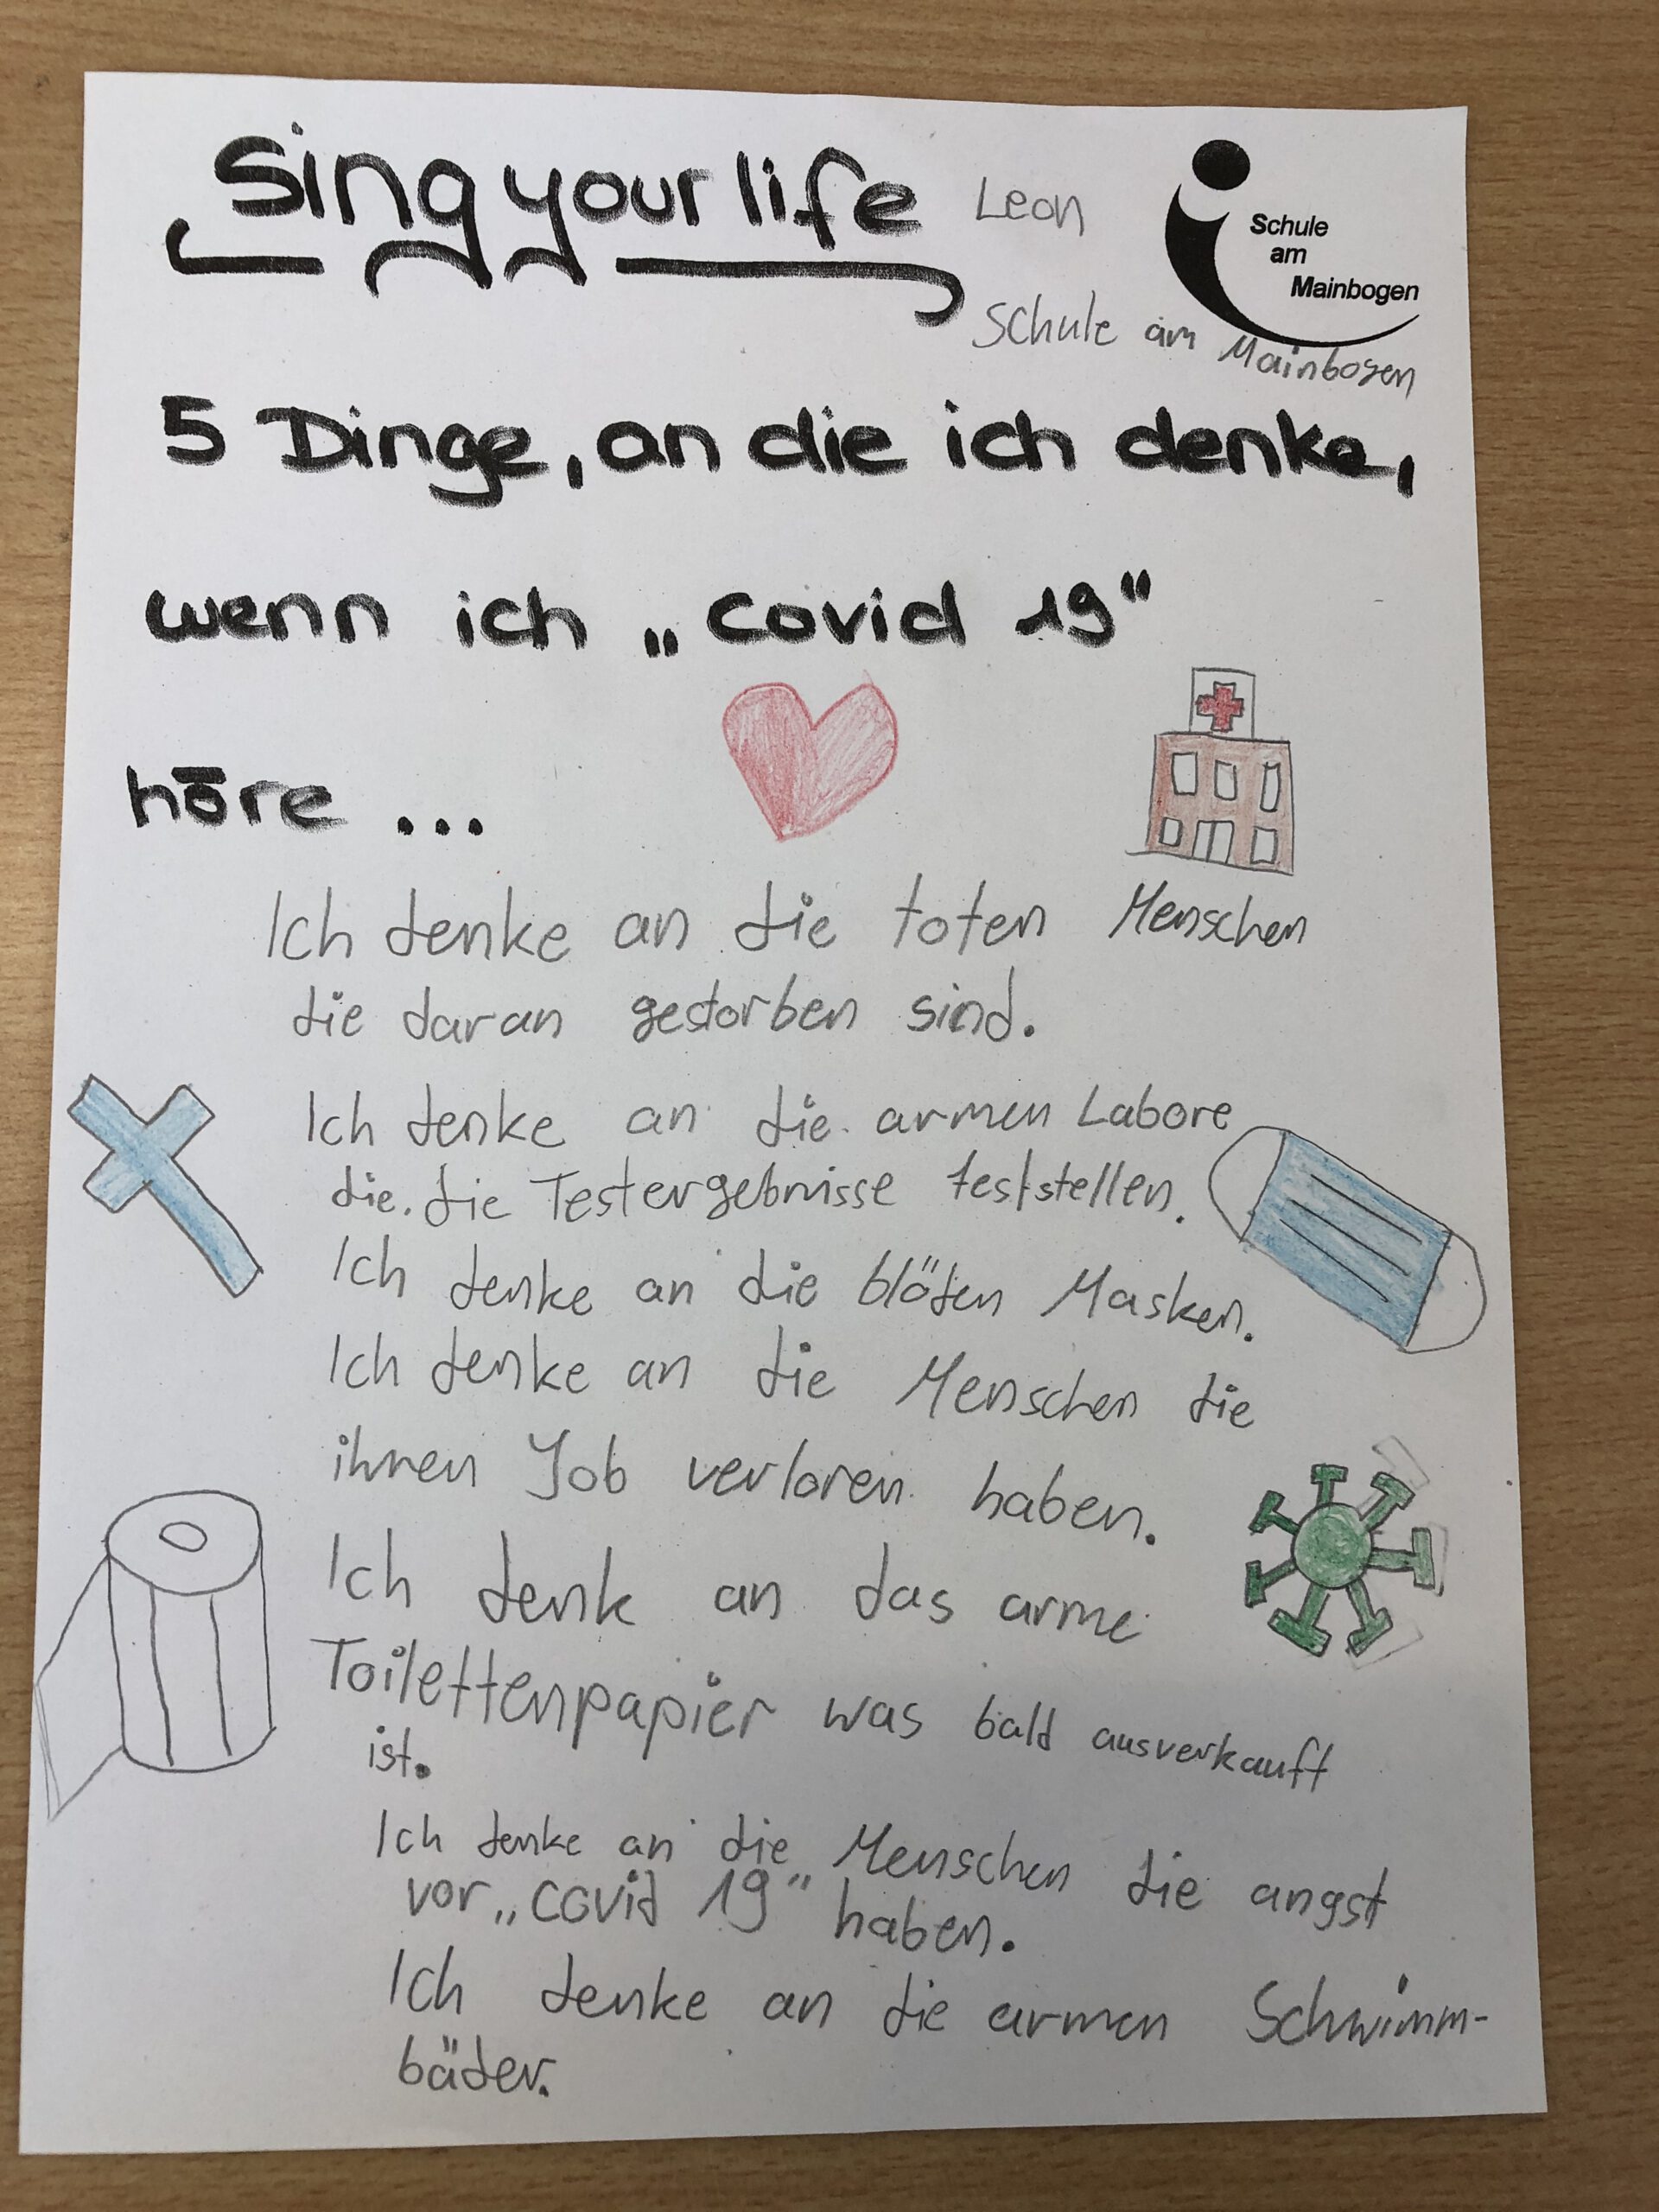 Sing your life
Leon
Schule
am
Mainbogen
Schule am Mainbogen
5 Dinge, an die ich denke,
wenn ich „Covid 19"
höre ...
Ich denke an die toten Menschen
die daran gestorben sind.
Ich denke an die armen Labore
die die Testergebnisse feststellen.
Ich denke an die blöden Masken.
Ich denke an die Menschen die
ihren Job verloren haben.
Ich denk an das arme
Toilettenpapier was bald ausverkauft
ist.
Ich denke an die Menschen die angst
vor „Covid 19" haben.
Ich denke an die armen Schwimm-
bäder.